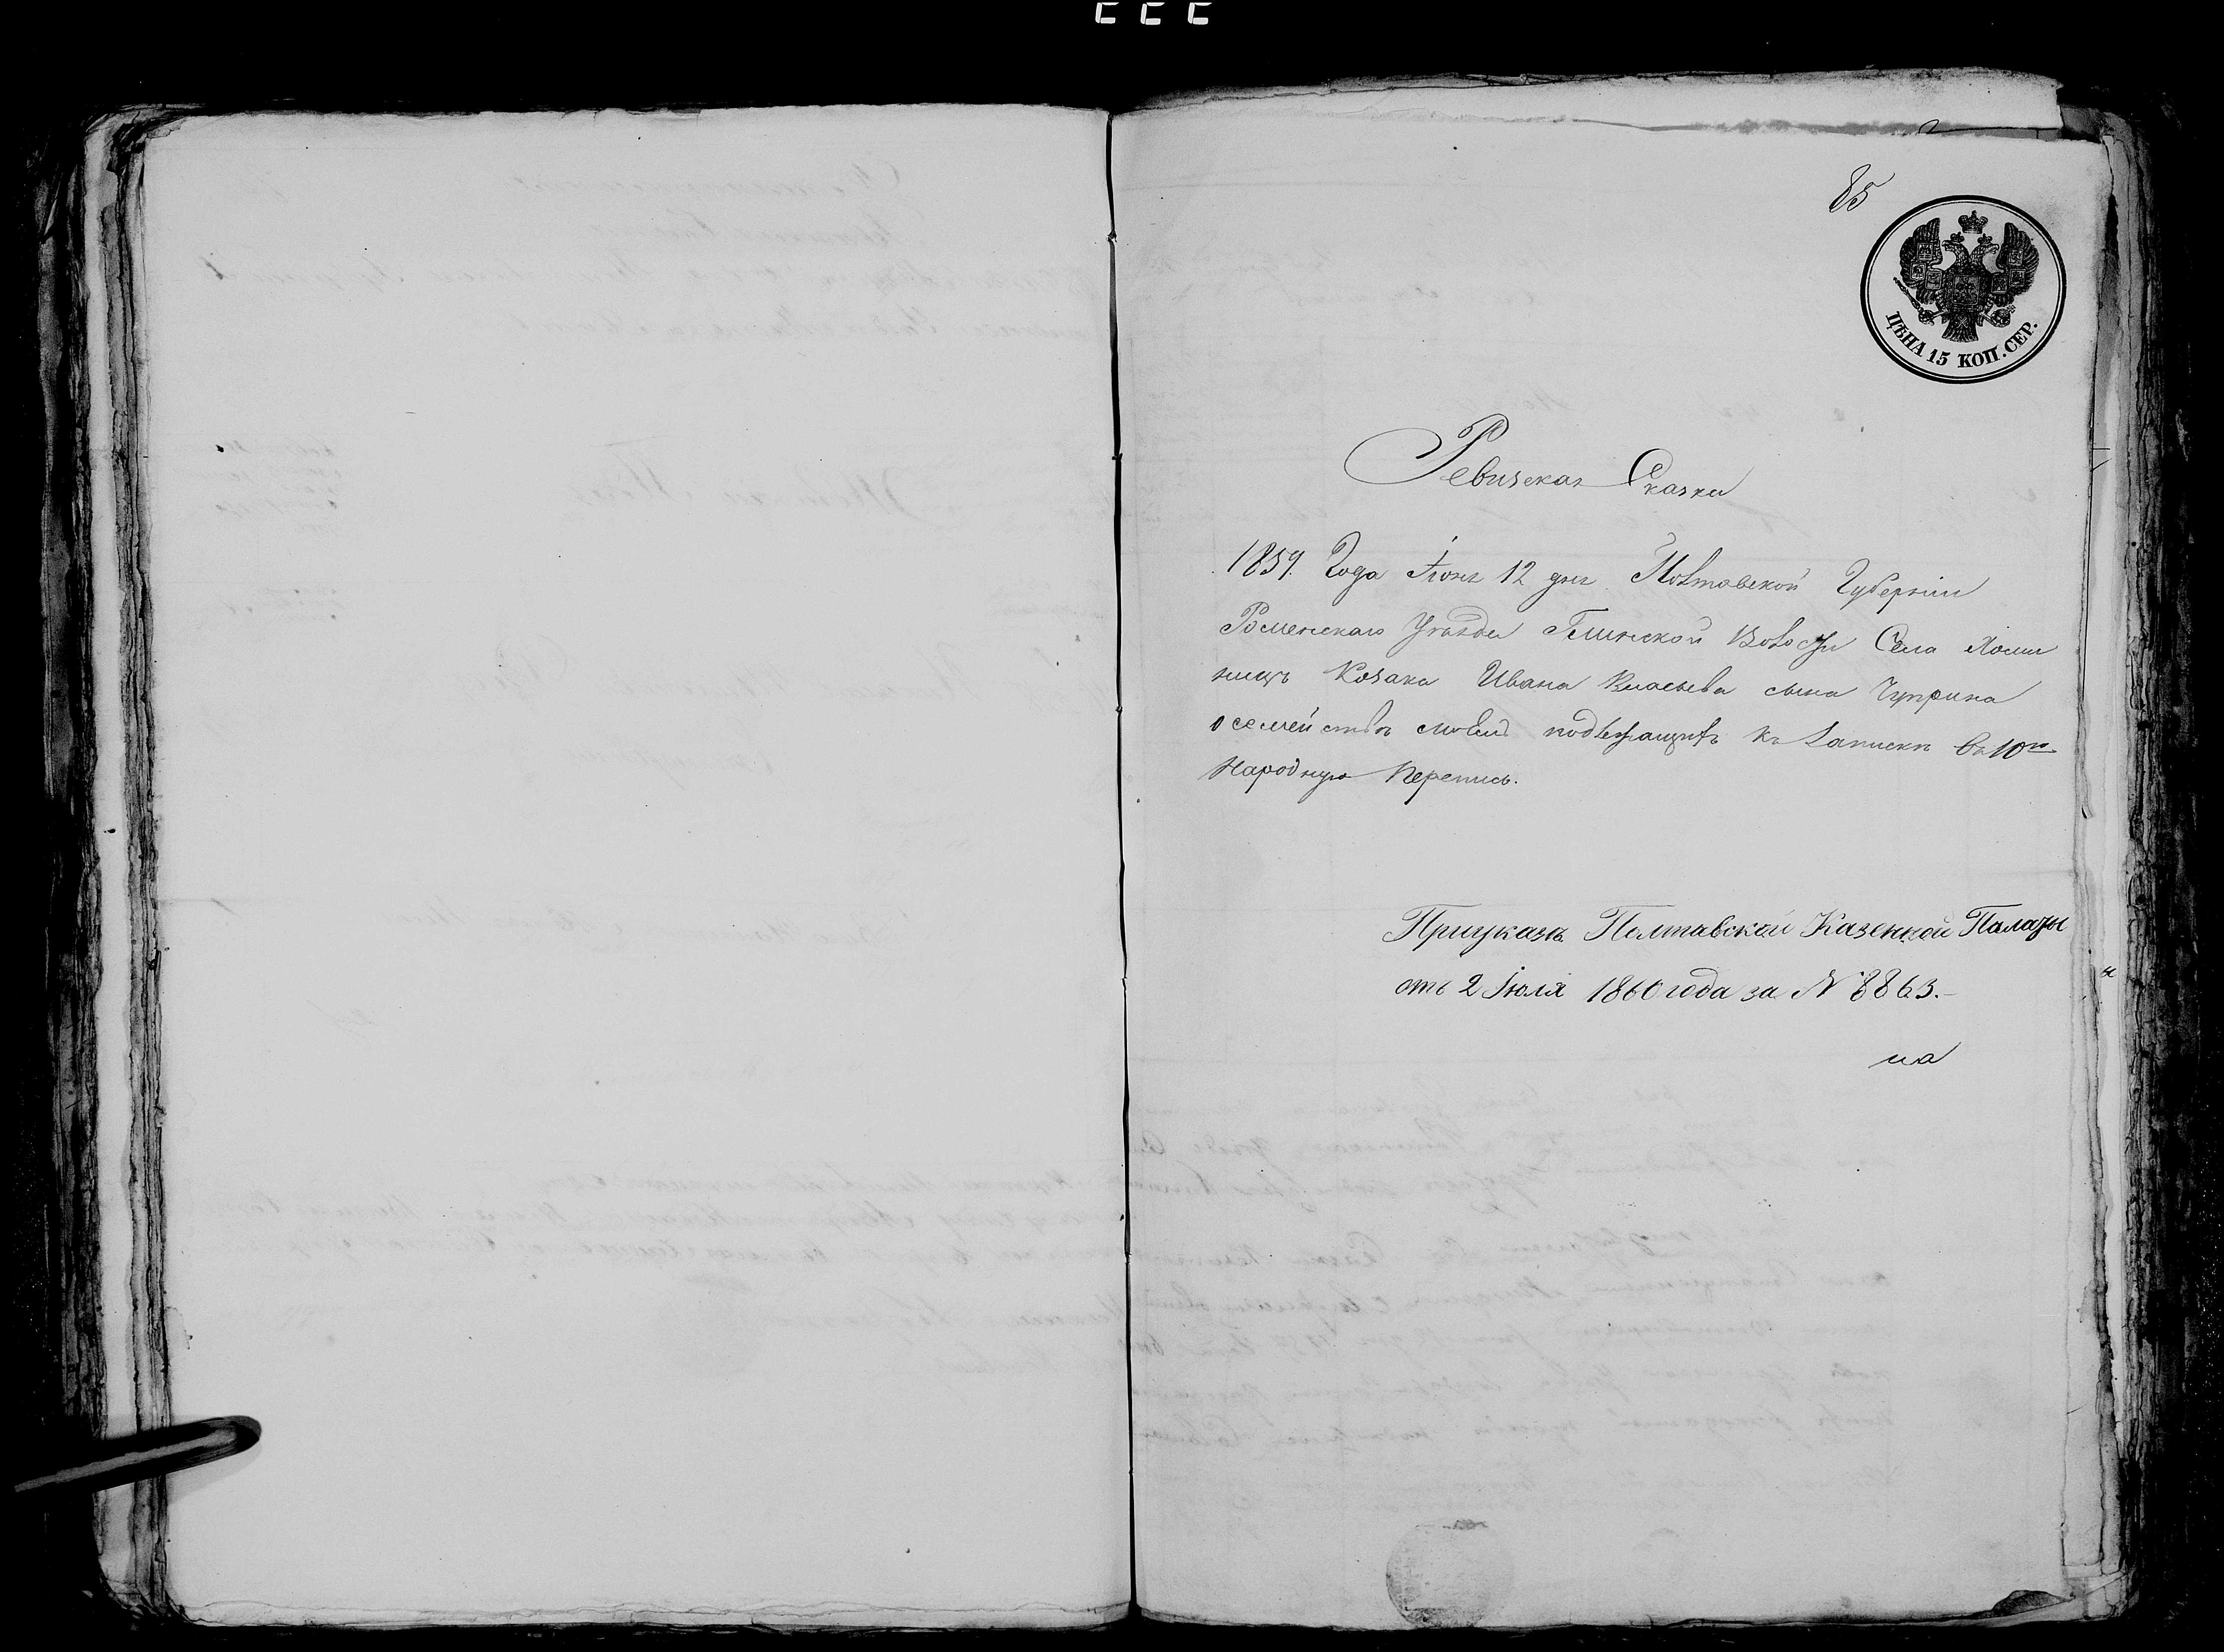 85
ЦѢНА 15 КОП. СЕР.
Ревизская Сказка
1859. Года Июня 12 дня Полтавской Губерніи
Роменскаго Уѣзда Глинской Волости Села
Козака Ивана Власьева сына Чуприна
о семействѣ моемъ подлежащихъ къ запискѣ въ 10ю
Народную Перепись.
При указѣ Полтавской Казенной Палаты
отъ 2 Іюля 1860 года за № 8863.-
на